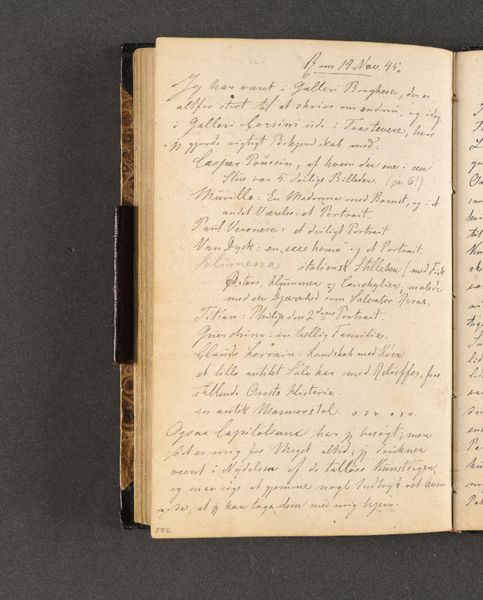 Rom 19 Nov. 45.
Jeg har været i Galleri Borghese, der er
altfor stort til at skrive om endnu, og idag
i Galleri Corsini ude i Trastevere, hvor
jeg gjorde rigtigt Bekjendskab med:
Caspar Poussin, af hvem der var i een
Stue var 5 deilige Billeder. (ja 6!)
Murillo: En Madonna med Barnet, og i et
andet Værelse et Portrait.
Paul Veronese: et deiligt Portrait
Van Dyck: en ecce homo og et Portrait.
italiensk Stilleben (med Fisk
Østers, Hummer og Conchylier, malede
med en Djærvhed som Salvator Rosas.
Titian: Philip den 2dens Portrait.
Guerchino: en hellig Familie.
Claude Lorrain: Landskab med Køer
et lille antikt Sølvkar med Relieffer, fore
stillende Orests Historie.
en antik Marmorstol. o.s.v. o.s.v.
Ogsaa Capitolium har jeg besøgt; men
for Meget altid; jeg drukner
reent i Nydelsen af de talløse Kunstsager,
og maa søge at gjemme nogle Indtryk
at jeg kan tage dem med mig hjem.